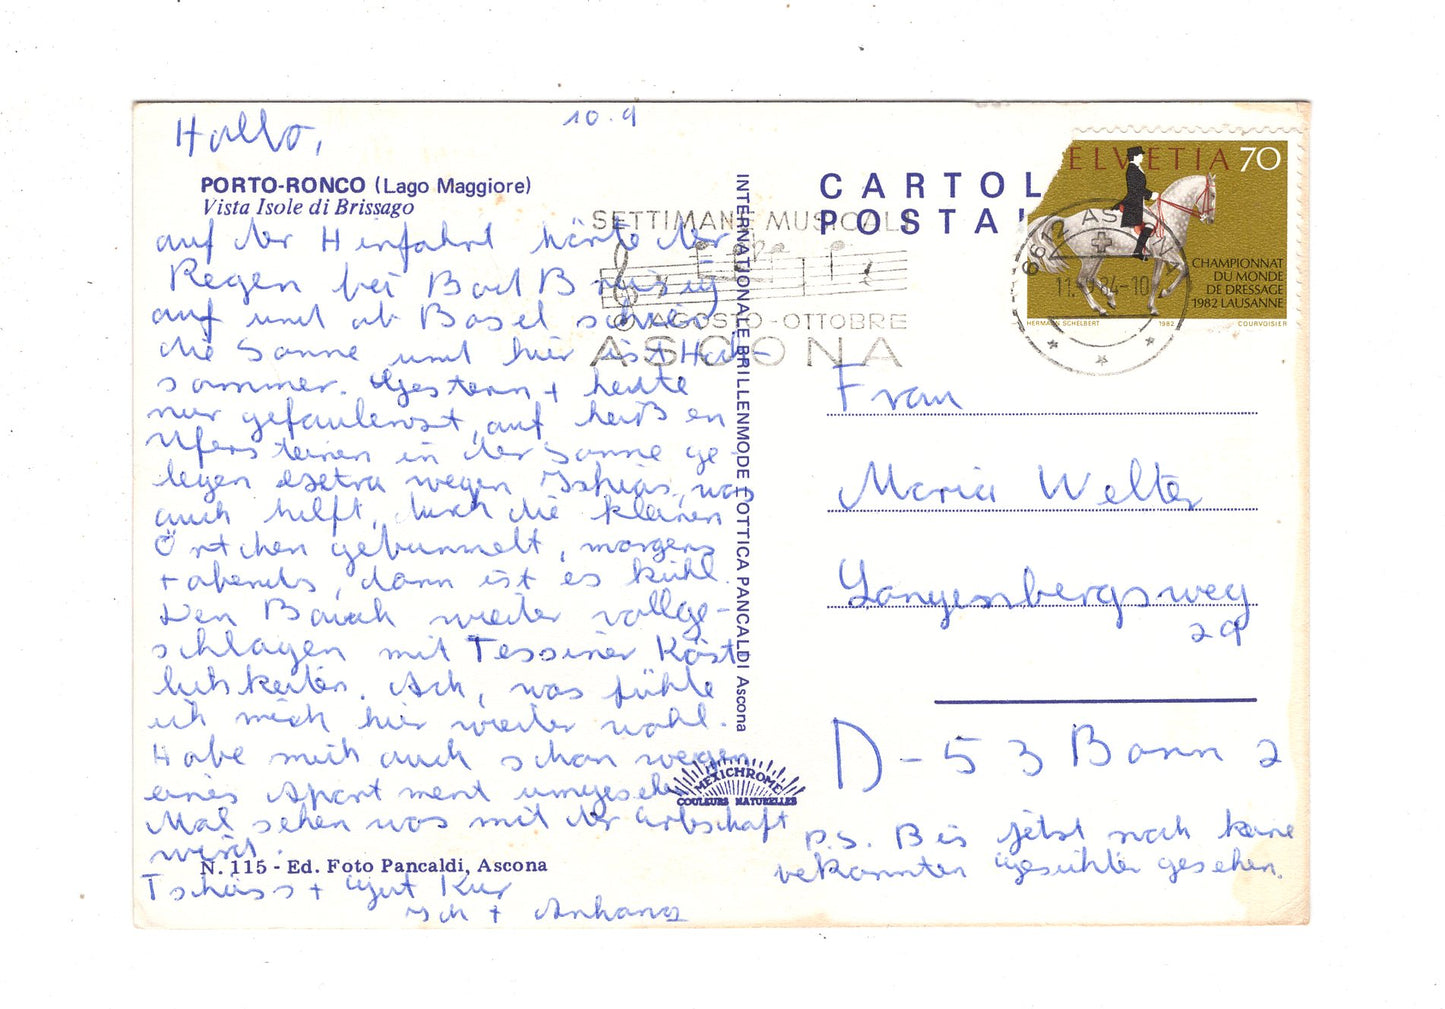 Hallo,
10.9
PORTO-RONCO (Lago Maggiore)
Vista Isole di Brissago
auf der Hinfahrt hörte der
Regen bei Bad Breisig
auf und ab Basel schien
die Sonne und hier ist Hoch-
sommer. Gestern + heute
nur gefaulenzt, auf heißen
Ufersteinen in der Sonne ge
legen extra wegen Ischias, was
auch hilft, durch die kleinen
Örtchen gebummelt, morgens
+ abends, dann ist es kühl.
Den Bauch wieder vollge-
schlagen mit Tessiner Köst
lichkeiten. Ach, was fühle
ich mich hier wieder wohl.
Habe mich auch schon wegen
eines Apartment umgesehen
Mal sehen was mit der Erbschaft
wird.
N. 115 - Ed. Foto Pancaldi, Ascona
Tschüss + gut Kur
Ich + Anhang
INTERNATIONALE BRILLENMODE L'OTTICA PANCALDI Ascona
MEXICHROME
COULEURS NATURELLES
CARTOL
POSTA
SETTIMANE MUSICALI
AGOSTO-OTTOBRE
ASCONA
HELVETIA 70
CHAMPIONNAT
DU MONDE
DE DRESSAGE
1982 LAUSANNE
HERMANN SCHELBERT 1982 COURVOISIER
6612 ASCONA
84-10
Frau
Maria Welter
Langenbergsweg
29
D-53 Bonn 2
P.S. Bis jetzt noch keine
bekannten Gesichter gesehen.